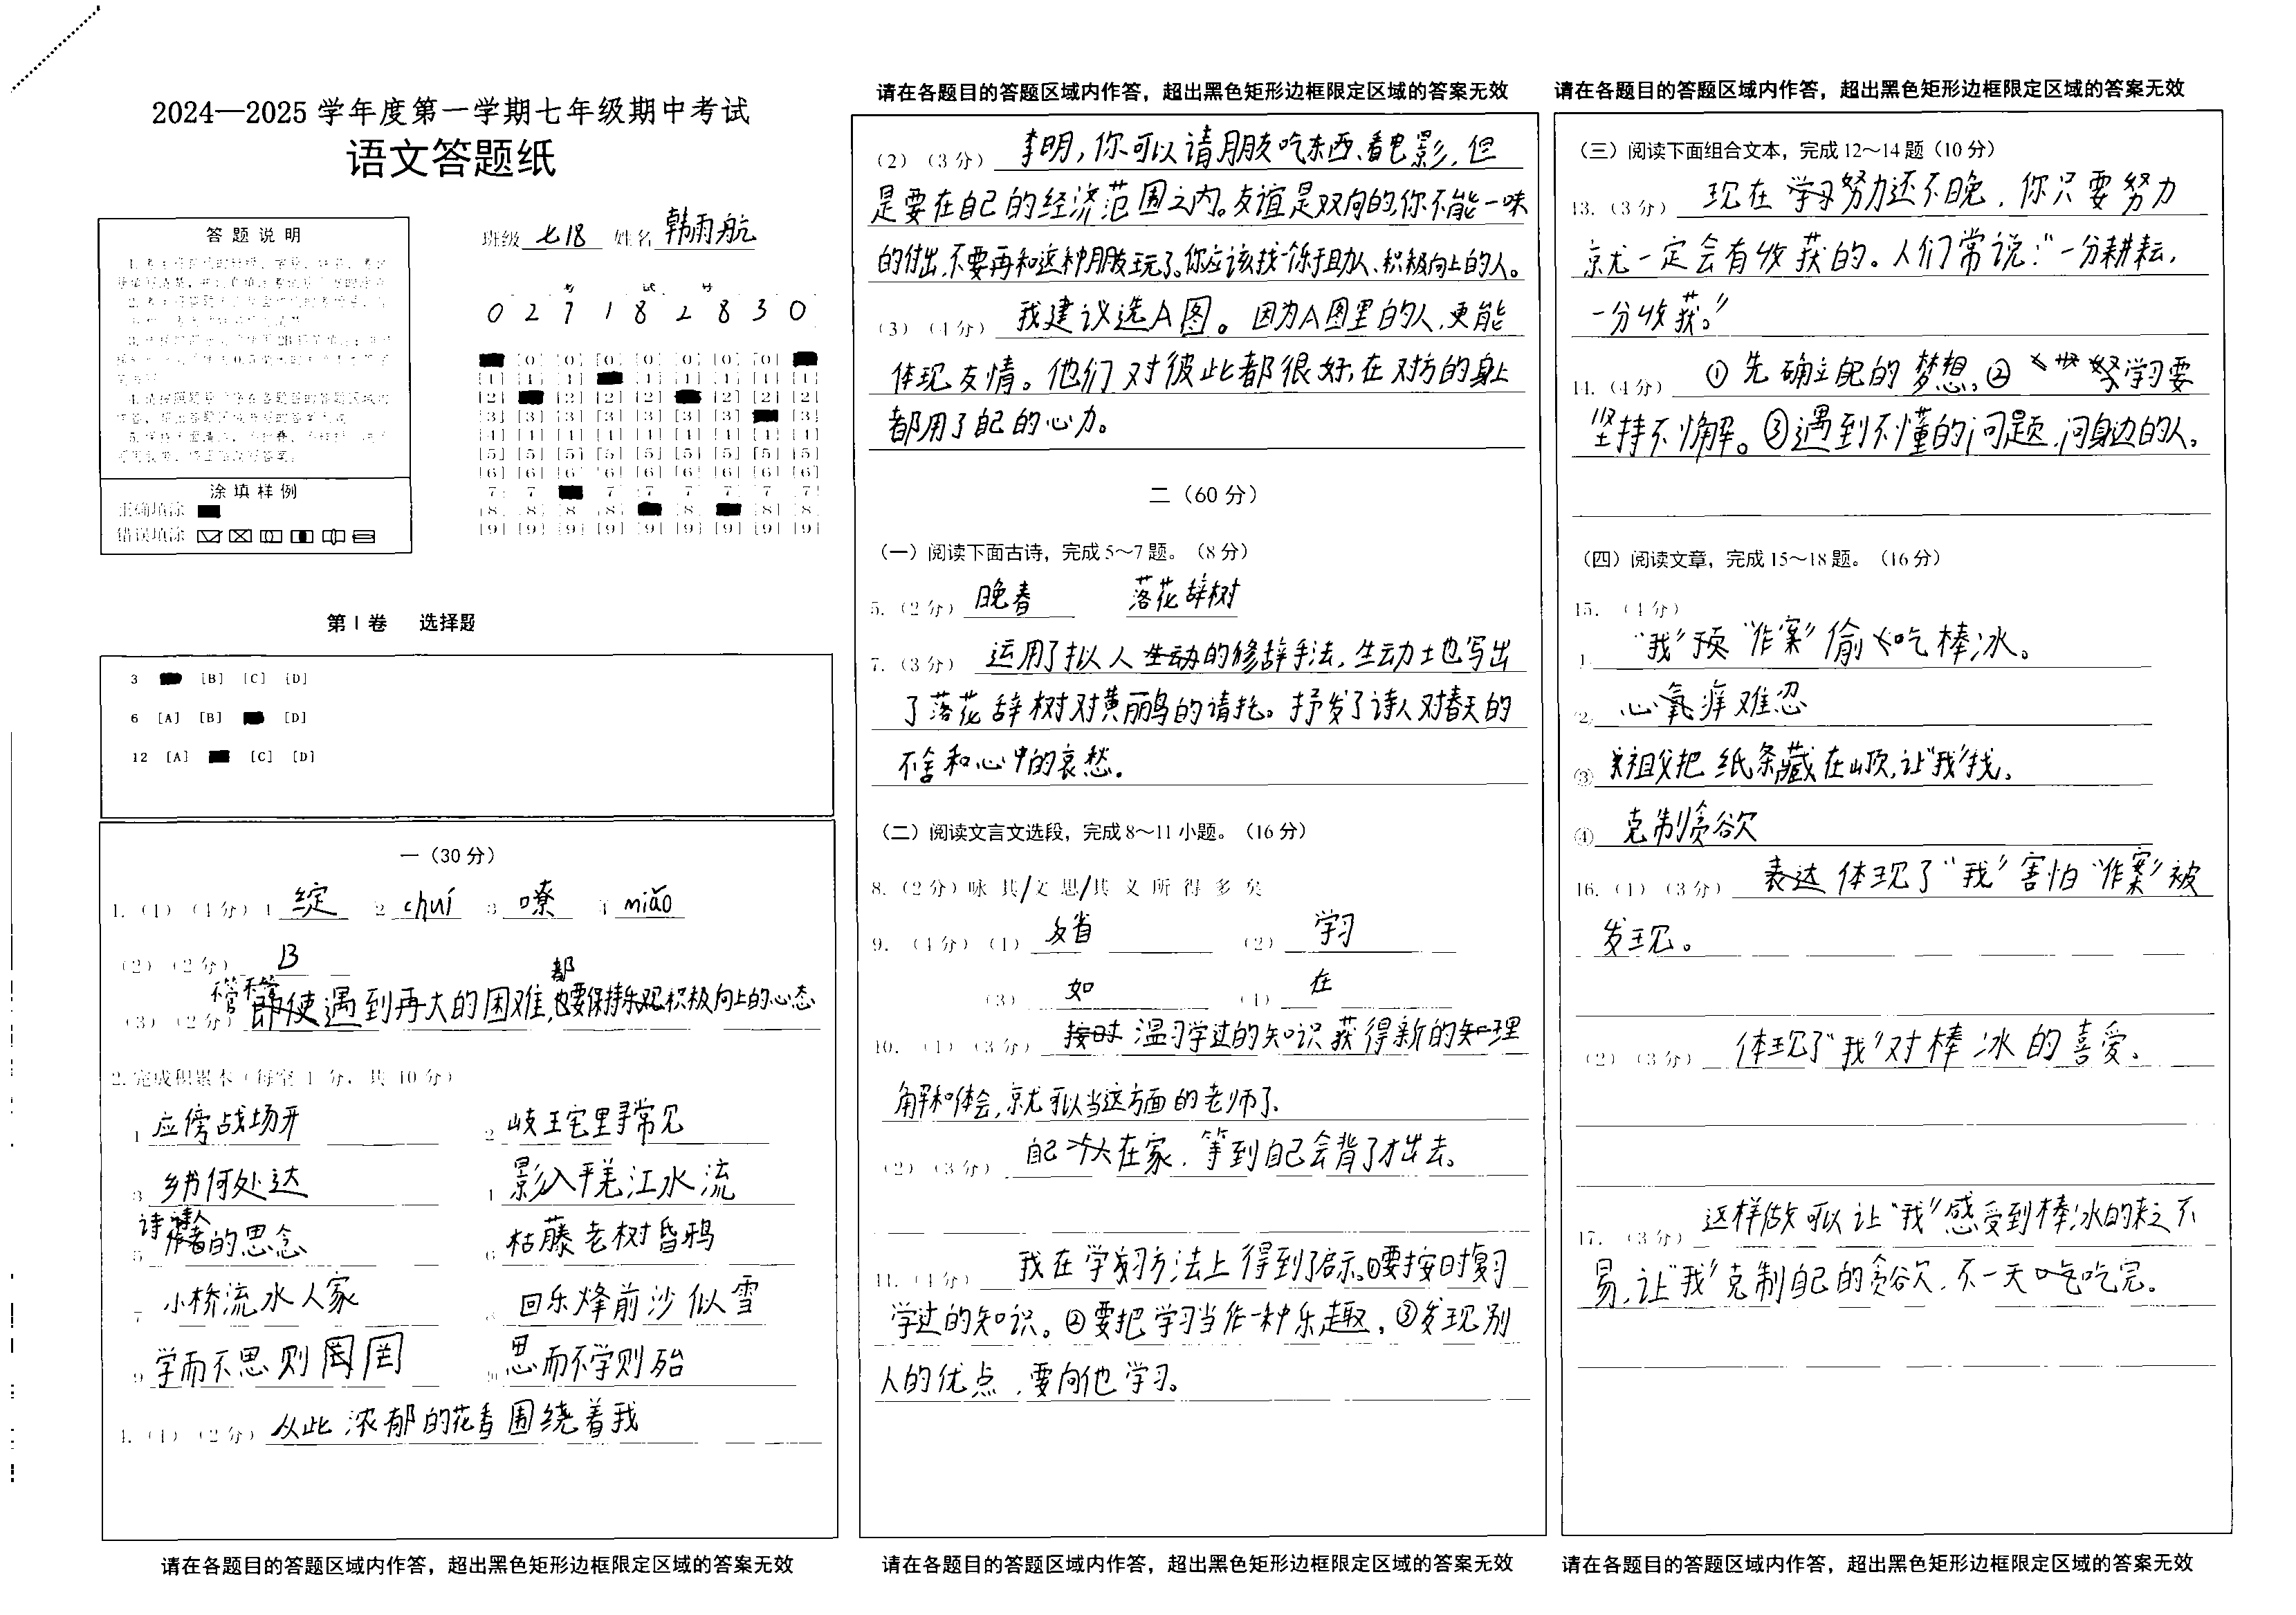 2024—2025 学年度第一学期七年级期中考试
语文答题纸
答 题 说 明
涂 填 样 例
正确填涂
错误填涂
班级 七18 姓名 韩雨航
考 试 号
0 2 7 1 8 2 8 3 0
第 I 卷 选择题
3 [B] [C] [D]
6 [A] [B] [D]
12 [A] [C] [D]
一（30 分）
1.（1）（4分）1 绽 2 chuí 3 嘹 4 miǎo
（2）（2分） B
不管
都
（3）（2分）即使遇到再大的困难,也要保持乐观积极向上的心态
2.完成积累本（每空 1 分，共 10 分）
1 应傍战场开 2 岐王宅里寻常见
3 乡书何处达 4 影入平羌江水流
诗人
5 作者的思念 6 枯藤老树昏鸦
7 小桥流水人家 8 回乐烽前沙似雪
9 学而不思则罔 10 思而不学则殆
4.（1）（2分）从此,浓郁的花香围绕着我
请在各题目的答题区域内作答，超出黑色矩形边框限定区域的答案无效
请在各题目的答题区域内作答，超出黑色矩形边框限定区域的答案无效
（2）（3分） 李明,你可以请朋友吃东西、看电影,但
是要在自己的经济范围之内。友谊是双向的,你不能一味
的付出,不要再和这种朋友玩了。你应该找一个乐于助人、积极向上的人。
（3）（4分） 我建议选A图。因为A图里的人,更能
体现友情。他们对彼此都很好,在对方的身上
都用了自己的心力。
二（60 分）
（一）阅读下面古诗，完成 5～7 题。（8 分）
5.（2分） 晚春 落花辞树
7.（3分） 运用了拟人生动的修辞手法,生动土也写出
了落花辞树对黄丽鸟的请托。抒发了诗人对春天的
不舍和心中的哀愁.
（二）阅读文言文选段，完成 8～11 小题。（16 分）
8.（2分）咏 其/文 思/其 义 所 得 多 矣
9.（4分）（1） 反省 （2） 学习
（3） 如 （4） 在
10.（1）（3分） 按时 温习学过的知识获得新的知理
解和体会,就可以当这方面的老师了.
（2）（3分） 自己 在家,等到自己会背了才出去。
11.（4分） 我在学习方法上得到了启示。①要按时复习
学过的知识。②要把学习当作一种乐趣,③发现别
人的优点,要向他学习。
请在各题目的答题区域内作答，超出黑色矩形边框限定区域的答案无效
请在各题目的答题区域内作答，超出黑色矩形边框限定区域的答案无效
（三）阅读下面组合文本，完成 12～14 题（10 分）
13.（3分） 现在学习努力还不晚,你只要努力
就一定会有收获的。人们常说:“一分耕耘,
一分收获。”
14.（4分） ①先确立自己的梦想,②学习要
坚持不懈。③遇到不懂的问题,问身边的人。
（四）阅读文章，完成 15～18 题。（16 分）
15.（4分）
1. “我”预“作案”偷吃棒冰。
2. 心氧痒难忍
③ 祖父把纸条藏在山顶,让“我”找。
④ 克制贪欲
16.（1）（3分） 表达体现了“我”害怕“作案”被
发现。
（2）（3分） 体现了“我”对棒冰的喜爱.
17.（3分） 这样做可以让“我”感受到棒冰的来之不
易,让“我”克制自己的贪欲,不一天吃完.
请在各题目的答题区域内作答，超出黑色矩形边框限定区域的答案无效